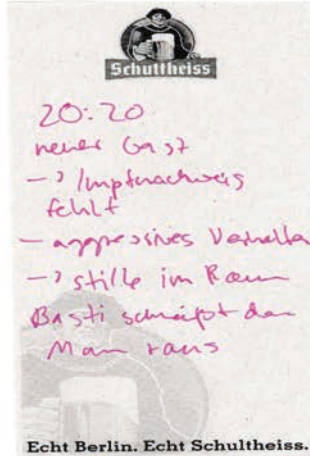 Schultheiss
20:20
neuer Gast
-> Impfnachweis
fehlt
- aggressives Verhalten
-> stille im Raum
Basti schmeißt den
Mann raus
Echt Berlin. Echt Schultheiss.